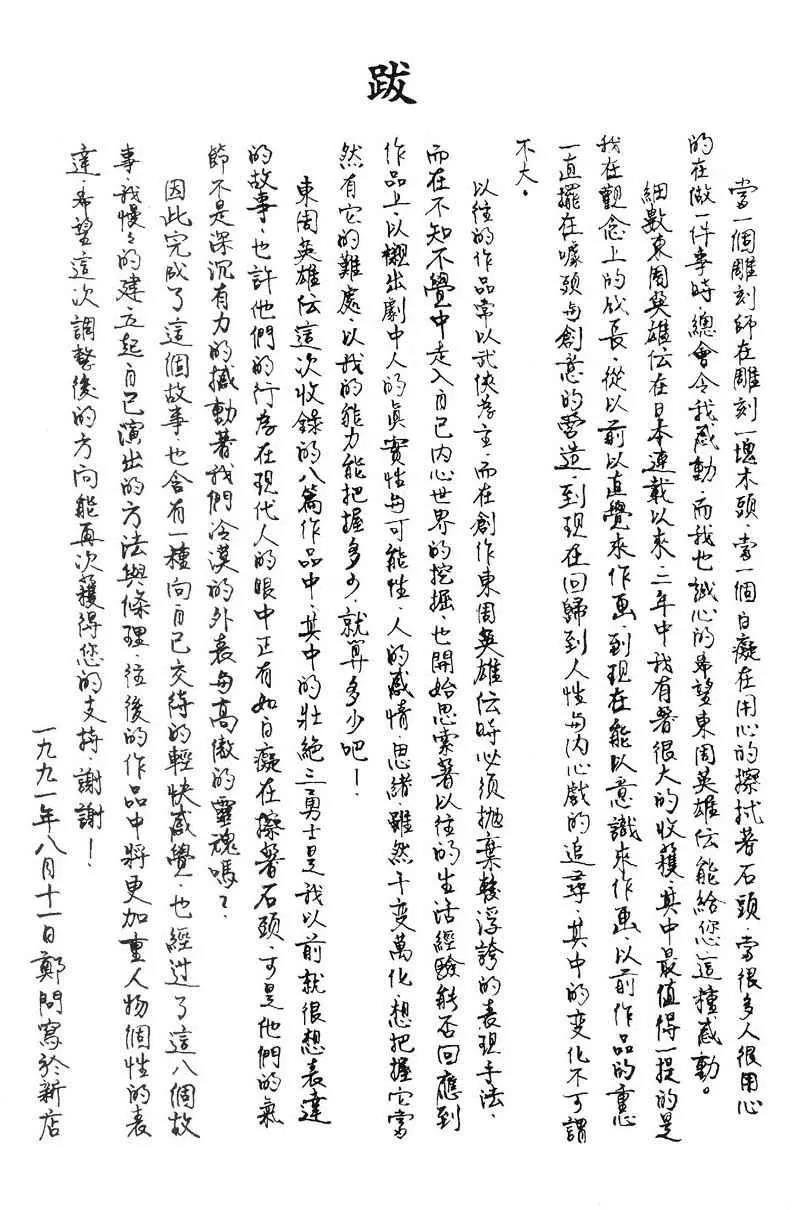 跋
當一個雕刻師在雕刻一塊木頭，當一個白癡在用心的擦拭著石頭，當很多人很用心
的在做一件事時，總會令我感動，而我也誠心的希望東周英雄伝能給您這種感動。
細數東周英雄伝在日本連載以來，二年中我有著很大的收獲，其中最值得一提的是
我在觀念上的成長，從以前以直覺來作画，到現在能以意識來作画，以前作品的重心
一直擺在噱頭与創意的營造，到現在回歸到人性与內心戲的追尋，其中的变化不可謂
不大。
以往的作品常以武俠為主，而在創作東周英雄伝時必須拋棄較浮誇的表現手法，
而在不知不覺中走入自己內心世界的挖掘，也開始思索著以往的生活經驗能否回應到
作品上，以襯出劇中人的真實性与可能性，人的感情，思緒，雖然千变萬化，想把握它當
然有它的難處，以我的能力能把握多少，就算多少吧！
東周英雄伝這次收錄的八篇作品中，其中的壯絕三勇士是我以前就很想表達
的故事，也許他們的行為在現代人的眼中正有如白癡在擦著石頭，可是他們的氣
節不是深沉有力的撼動著我們冷漠的外表与高傲的靈魂嗎？
因此完成了這個故事也含有一種向自己交待的輕快感覺，也經过了這八個故
事，我慢々的建立起自己演出的方法與條理，往後的作品中將更加重人物個性的表
達，希望這次調整後的方向能再次獲得您的支持，謝謝！
一九九一年八月十一日鄭問寫於新店